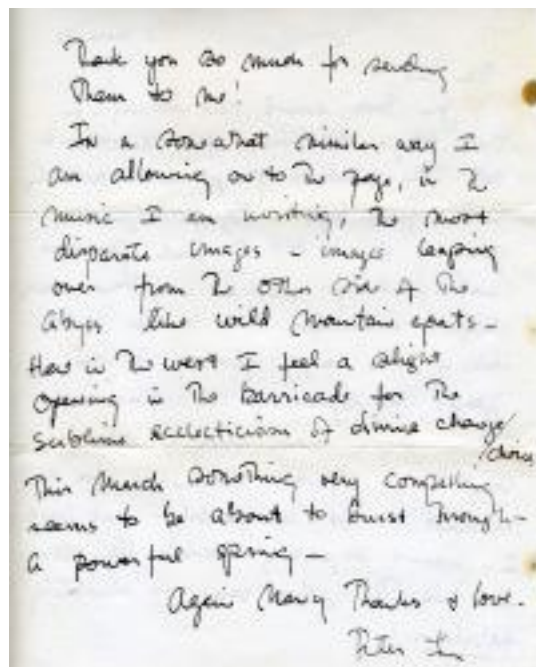 Thank you so much for sending
them to me!
In a somewhat similar way I
am allowing on to the page, in the
music I am writing, the most
disparate images – images leaping
over from the other side of the
abyss like wild mountain goats –
Here in the west I feel a slight
opening in the barricade for the
sublime ecclecticism of divine change/
/choice
This March something very compelling
seems to be about to burst through –
a powerful spring –
Again Many Thanks & love.
Peter